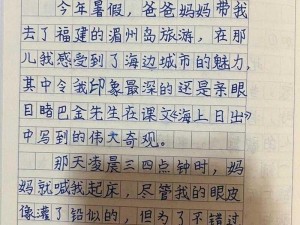 今年暑假，爸爸妈妈带我
去了福建的湄州岛旅游，在那
儿我感受到了海边城市的魅力，
其中令我印象最深的还是亲眼
目睹巴金先生在课文《海上日出》
中写到的伟大奇观。
那天凌晨三四点钟时，妈
妈就喊我起床，尽管我的眼皮
像灌了铅似的，但为了不错过